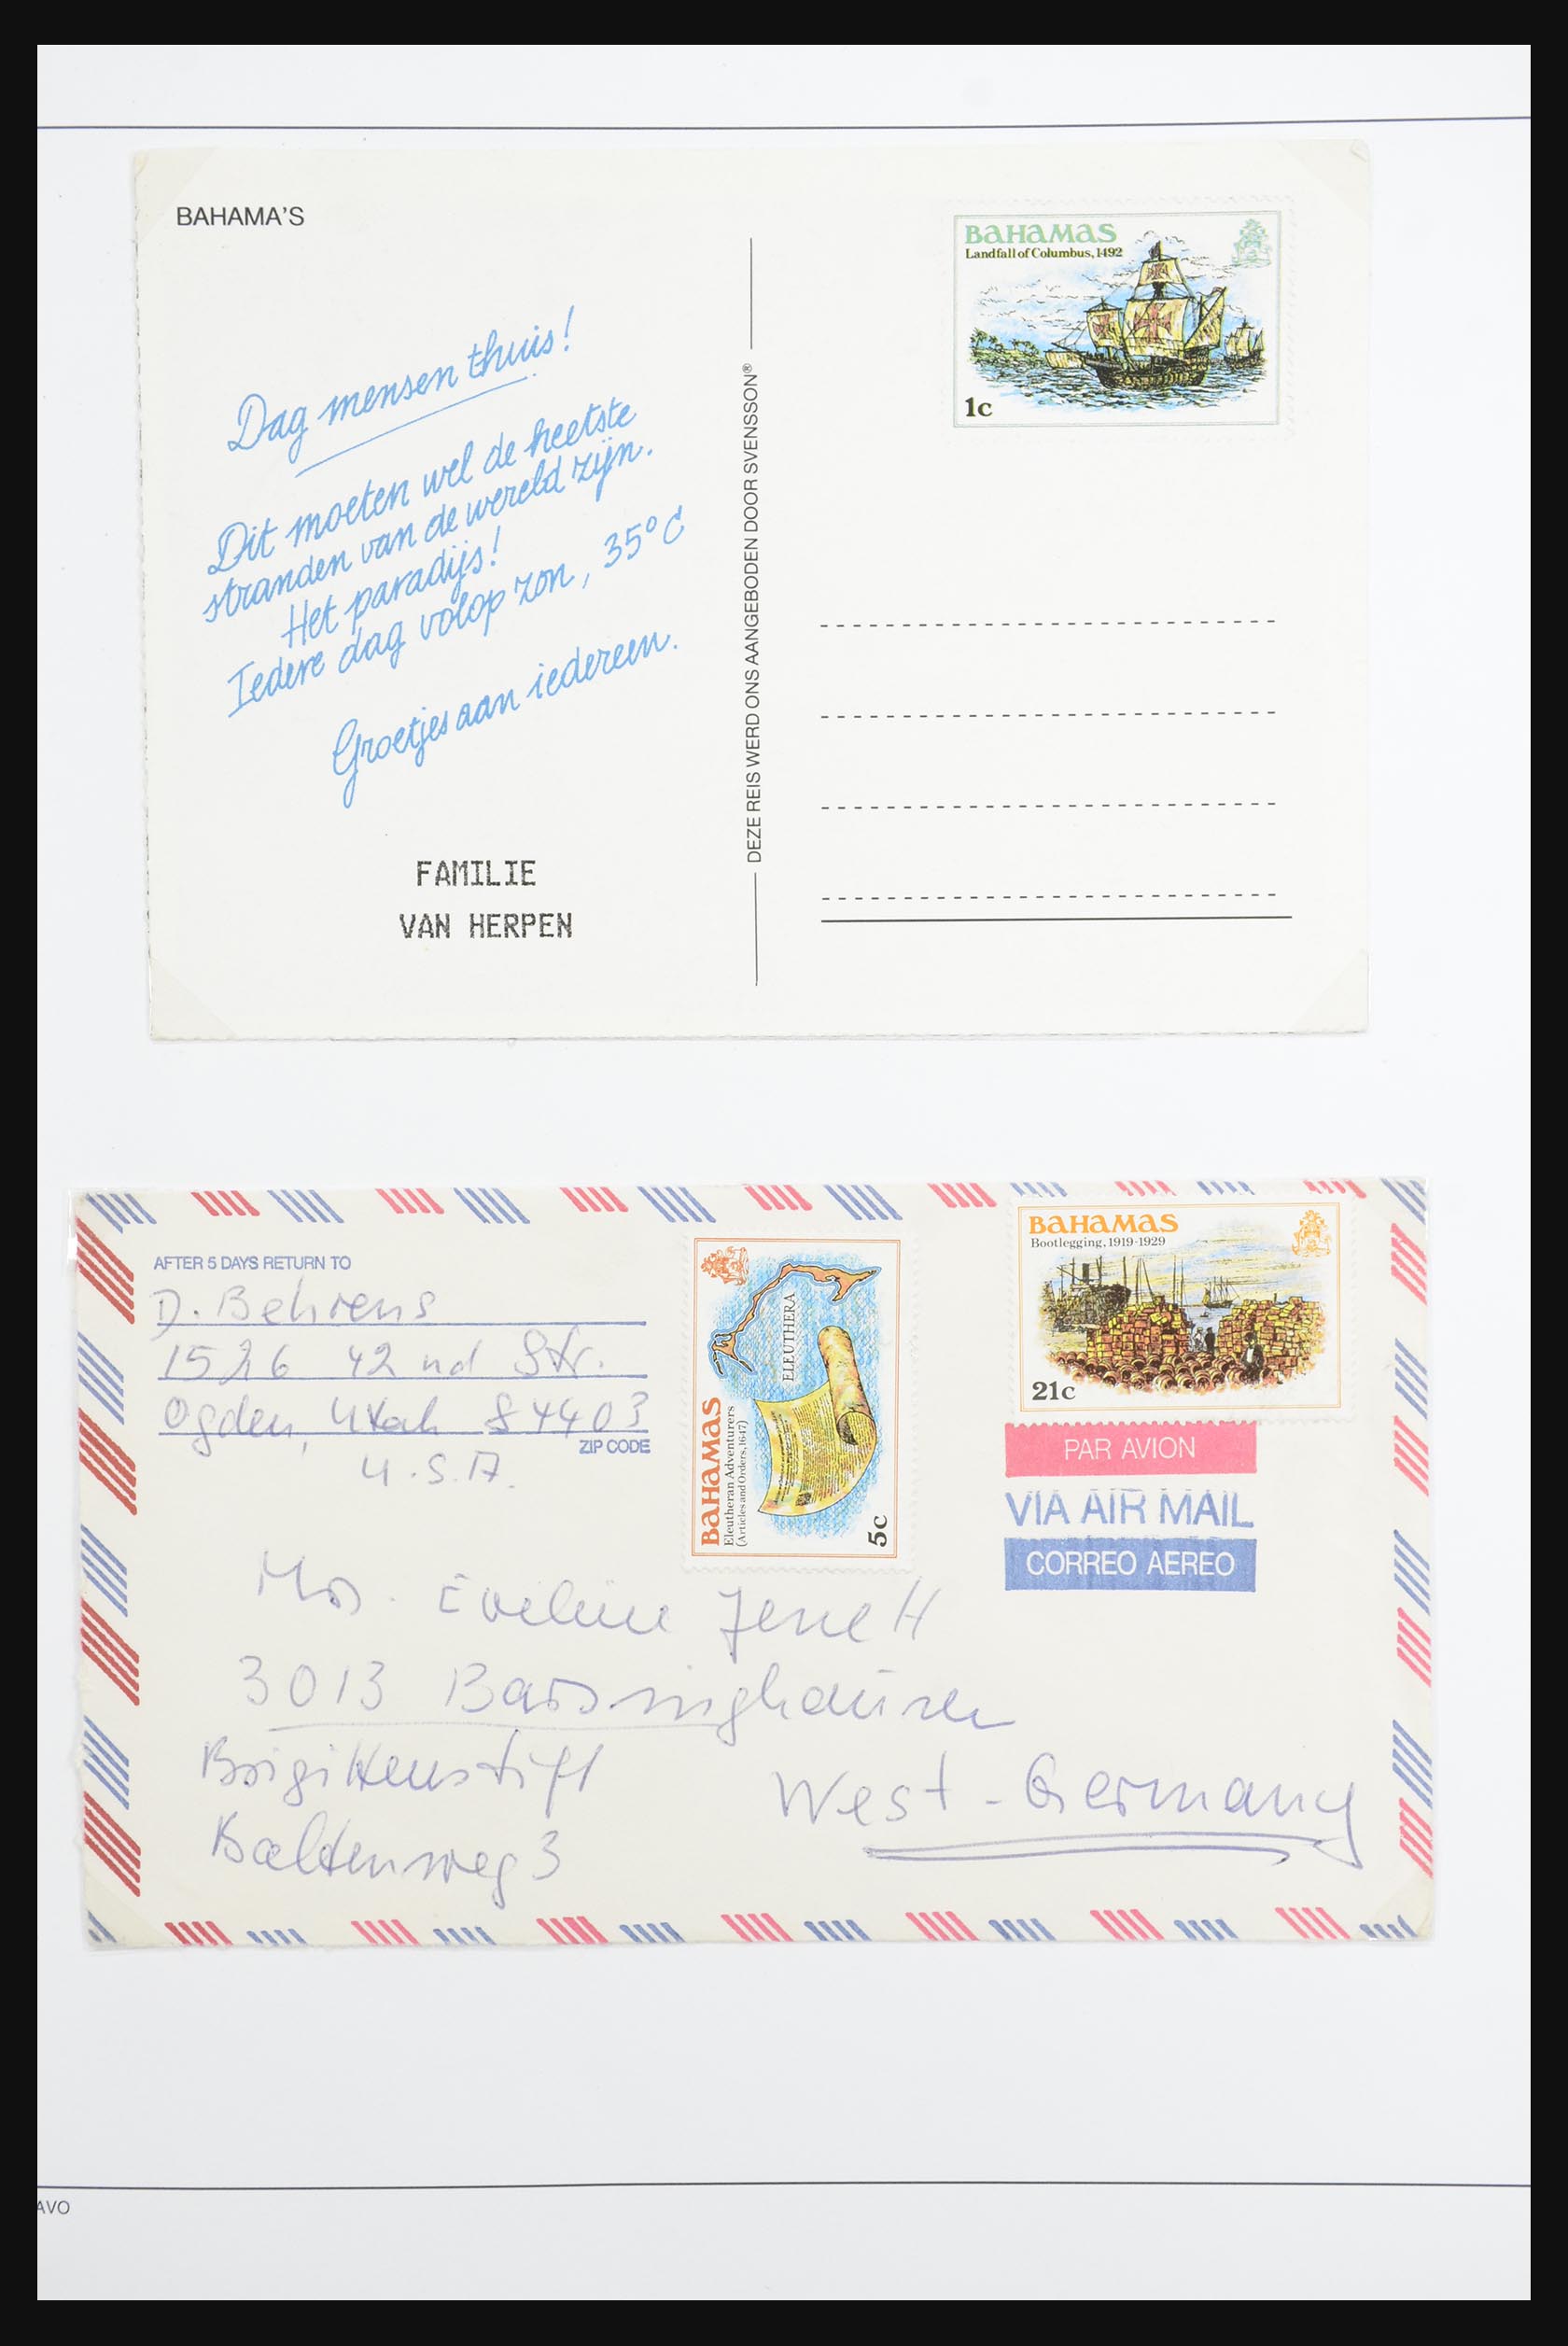 BAHAMA'S
BAHAMAS
Landfall of Columbus, 1492
1c
Dag mensen thuis!
Dit moeten wel de heetste
stranden van de wereld zijn.
Het paradijs!
Iedere dag volop zon, 35°C
Groetjes aan iedereen.
FAMILIE
VAN HERPEN
DEZE REIS WERD ONS AANGEBODEN DOOR SVENSSON®
AFTER 5 DAYS RETURN TO
D. Behrens
1526 42nd Str.
Ogden, Utah 84403
ZIP CODE
U.S.A.
BAHAMAS
Eleutheran Adventurers
(Articles and Orders, 1647)
ELEUTHERA
5c
BAHAMAS
Bootlegging, 1919-1929
21c
PAR AVION
VIA AIR MAIL
CORREO AEREO
Mrs. Eveline
3013 Barsinghausen
Brigittenstift
West-Germany
AVO